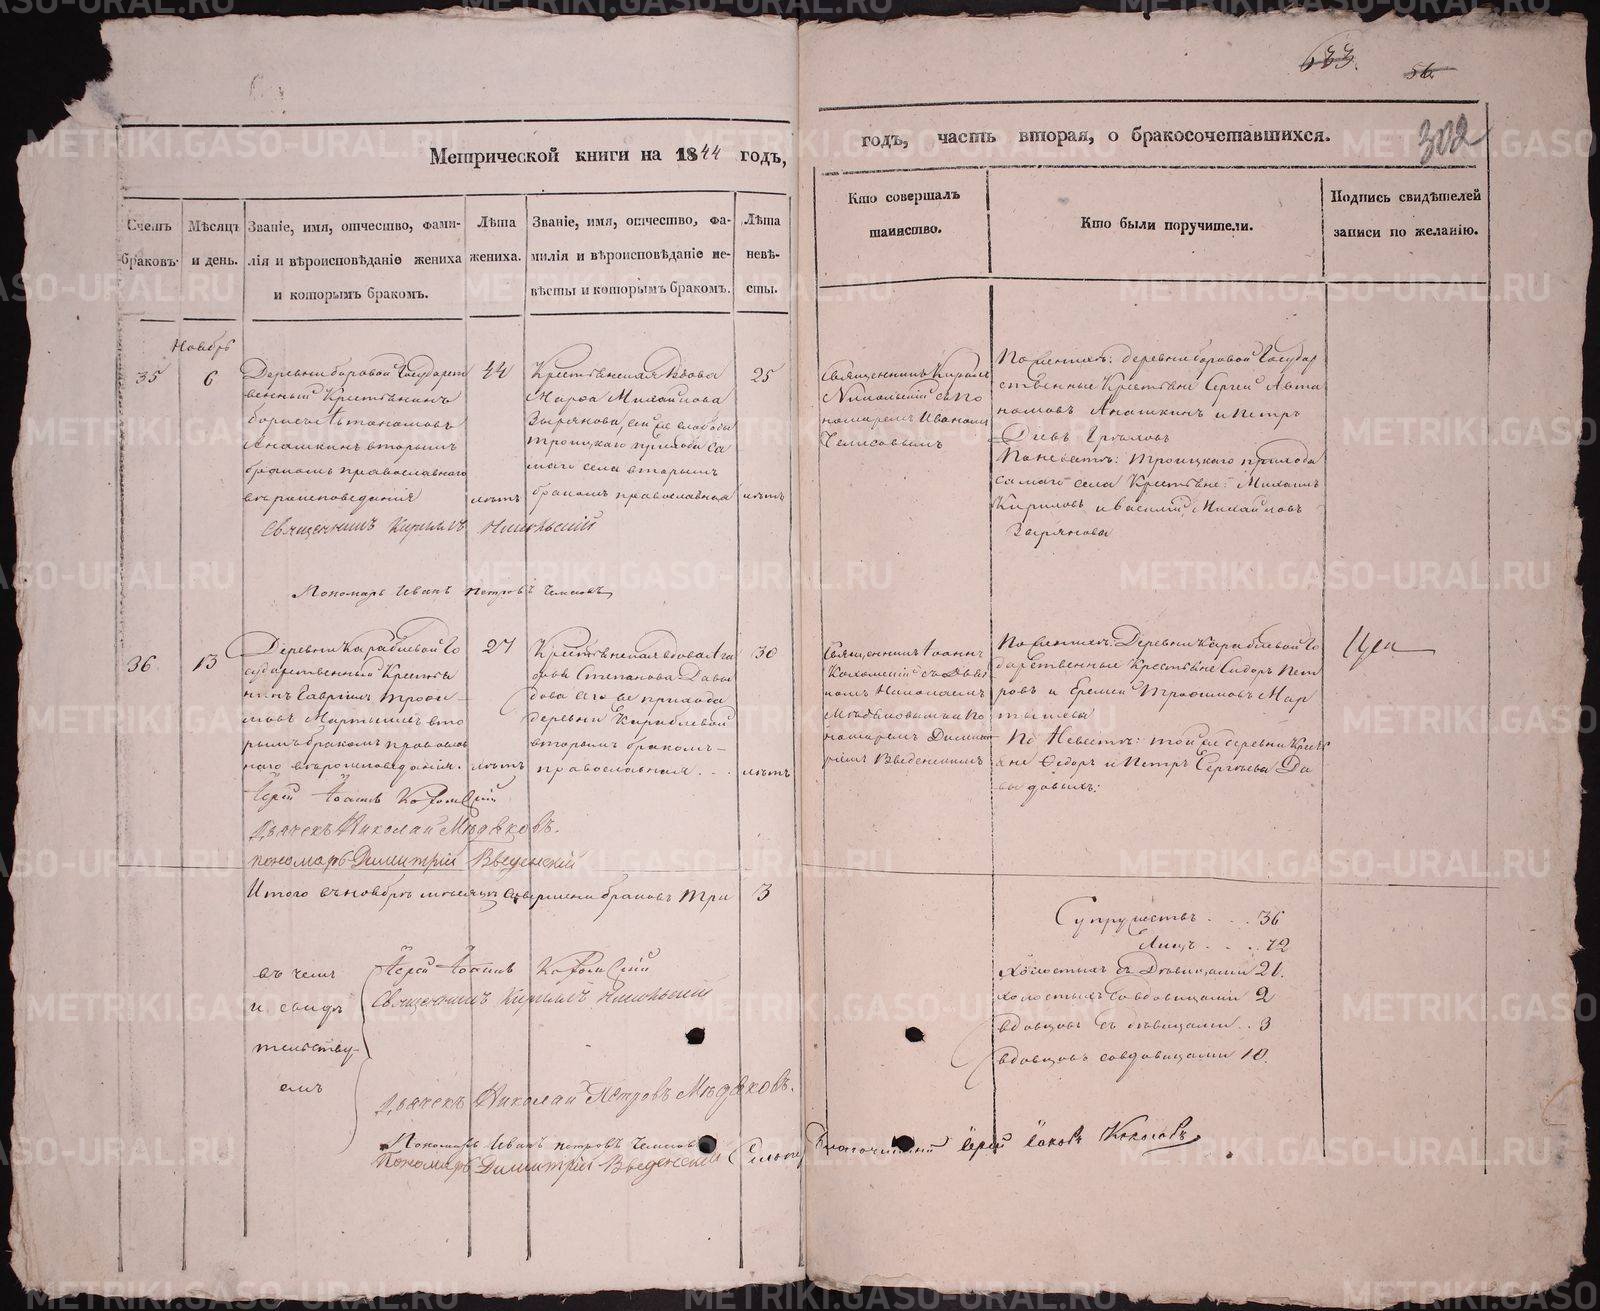 633.
56.
Метрической книги на 1844 годъ,
годъ, часть вторая, о бракосочетавшихся.
302
Счетъ браковъ.
Мѣсяцъ и день.
Званіе, имя, отчество, фами-
лія и вѣроисповѣданіе жениха
и которымъ бракомъ.
Лѣта жениха.
Званіе, имя, отчество, фа-
милія и вѣроисповѣданіе не-
вѣсты и которымъ бракомъ.
Лѣта невѣ-
сты.
Кто совершалъ
таинство.
Кто были поручители.
Подпись свидѣтелей
записи по желанію.
Ноябрь
35
6
Деревни боровой Государст
венный Крестьянинъ
борисъ Автономовъ
Анашкинъ вторымъ
бракомъ православнаго
вѣроисповеданія
44
лѣтъ
Крестьянская вдова
Марфа Михайлова
Зырянова, сей же слободы
троицкаго прихода са
маго села вторымъ
бракомъ православная
25
лѣтъ
Священникъ Кирилъ
Никольский съ По
номаремъ Иваномъ
По женихѣ: деревни боровой Государ
ственные Крестьяне Сергей Авто
номовъ Анашкинъ и Петръ
По невестѣ: троицкаго прихода
самаго села Крестьяне: Михаилъ
Кириловъ и Василій Михайловъ
Зырянова
Священникъ Кириллъ Никольскій
Пономарь Иванъ Петровъ
36
13
Деревни Караблевой Го
сударственный Крестья
нинъ Гавриилъ Трофи-
мовъ Мартышевъ вто
рымъ бракомъ православ
наго вѣроисповеданія.
27
лѣтъ
Крестьянская вдова Ага
фья Степанова Давы
дова сего же прихода
деревни Караблевой
вторымъ бракомъ-
православная . . .
30
лѣтъ
Священникъ Іоаннъ
съ Дьяч
комъ Николаемъ
Мѣдяковымъ и По
номаремъ Димит
ріемъ Введенскимъ
По женихѣ: Деревни Караблевой Го
дарственные Крестьяне Сидоръ Пет
ровъ и Еремей Трофимовъ Мар
тышевы
По Невестѣ: той же деревни Кресть
яне Федоръ и Петръ Сергѣевы Да
выдовыхъ:
Іерей Іоаннъ
Дьячекъ Николай Мѣдяковъ.
пономарь Димитрій Введенскій
Итого въ ноябрѣ мѣсяцѣ совершено браковъ три
3
Супружествъ . . . 36
Лицъ . . . 72
Холостыхъ съ Дѣвицами 21.
холостыхъ со вдовицами 2
вдовцовъ съ дѣвицами . . 3
вдовцовъ со вдовицами 10.
въ чемъ
и свидѣ
тельству-
емъ
Іерей Іоаннъ
Священникъ Кириллъ Никольскій
Дьячекъ Николай Петровъ Мѣдяковъ.
Пономарь Иванъ Петровъ
Пономарь Димитрій Введенскій
Благочинный Іерей Іаковъ
METRIKI.GASO-URAL.RU